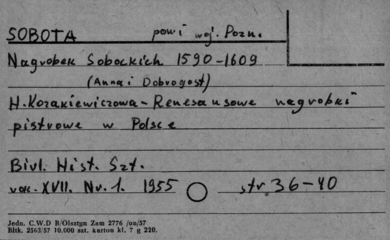 SOBOTA pow i woj. Pozn.
Nagrobek Sobockich 1590-1609
(Anna i Dobrogost)
H. Kozakiewiczowa - Renesansowe nagrobki
pistrowe w Polsce
Biul. Hist. Szt.
vol. XVII. Nr. 1. 1955 str. 36-40
Jedn. C.W.D B/Olsztyn Zam 2776 /oa/57
Bltk. 2563/57 10.000 szt. karton kl. 7 g 220.